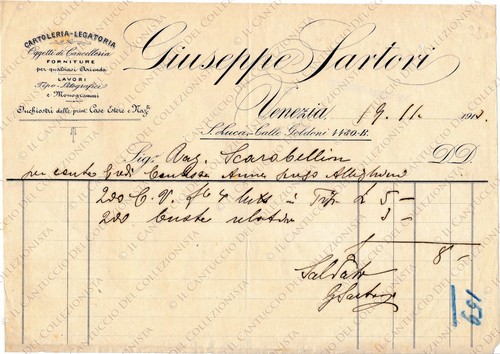 CARTOLERIA-LEGATORIA
Oggetti di Cancelleria
FORNITURE
per qualsiasi Azienda
LAVORI
Tipo-Litografici
e Monogrammi
Inchiostri delle princ. Case Estere e Naz.
Giuseppe Sartori
Venezia, 19.11. 191
S. Luca-Calle Goldoni 4480-B.
Sig. Rag. Scarabellin DD.
per conto Contessa Anna
200 C. V. 4 £ 5 -
200 buste relative 3 -
£ 8 -
Saldato
G Sartori
© IL CANTUCCIO DEL COLLEZIONISTA